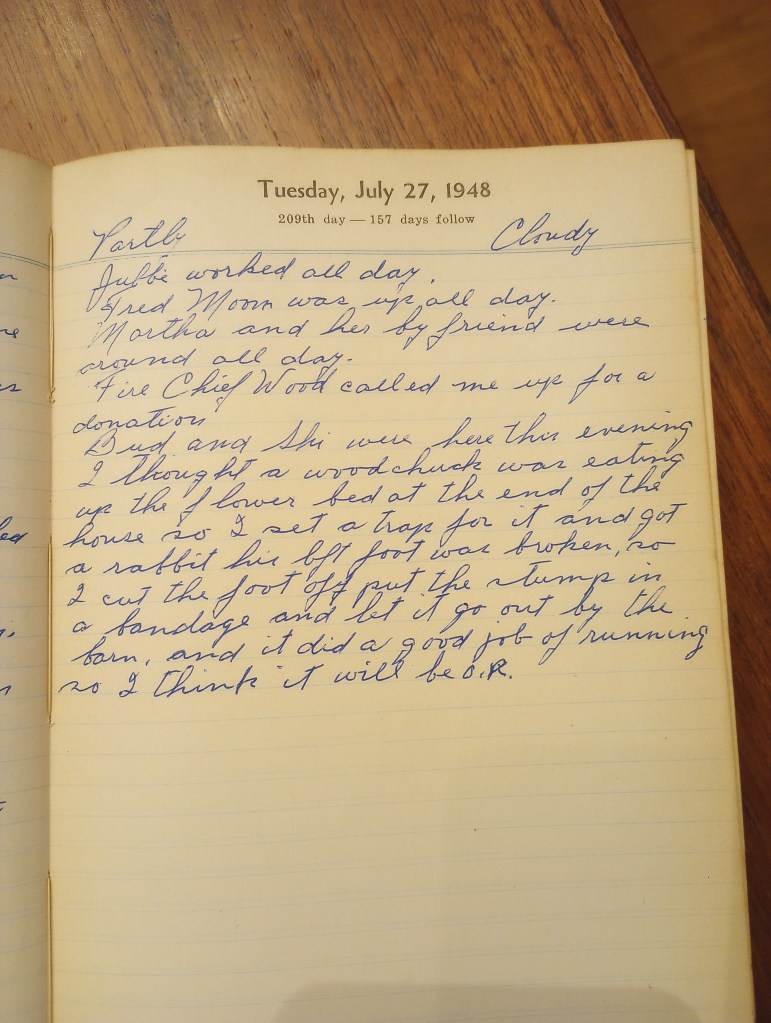 Tuesday, July 27, 1948
209th day — 157 days follow
Partly Cloudy
worked all day.
Fred Moon was up all day.
Martha and her by friend were
around all day.
Fire Chief Wood called me up for a
donation
Bud and Shi were here this evening
I thought a woodchuck was eating
up the flower bed at the end of the
house so I set a trap for it and got
a rabbit his left foot was broken, so
I cut the foot off put the stump in
a bandage and let it go out by the
barn, and it did a good job of running
so I think it will be O.K.